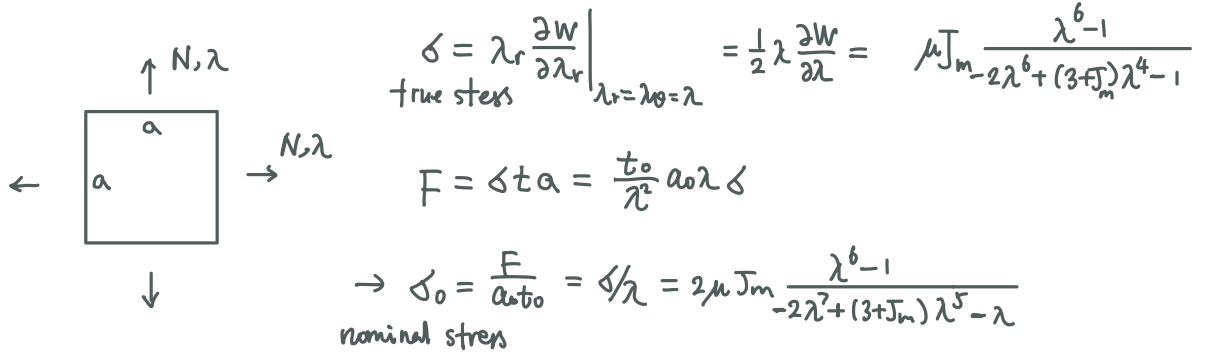 N,λ
a
a
N,λ
σ = λr ∂W/∂λr |λr=λθ=λ = 1/2 λ ∂W/∂λ = μJm (λ⁶-1)/(-2λ⁶+(3+Jm)λ⁴-1)
true stess
F = σta = t₀/λ² a₀λσ
→ σ₀ = F/a₀t₀ = σ/λ = 2μJm (λ⁶-1)/(-2λ⁷+(3+Jm)λ⁵-λ)
nominal stress